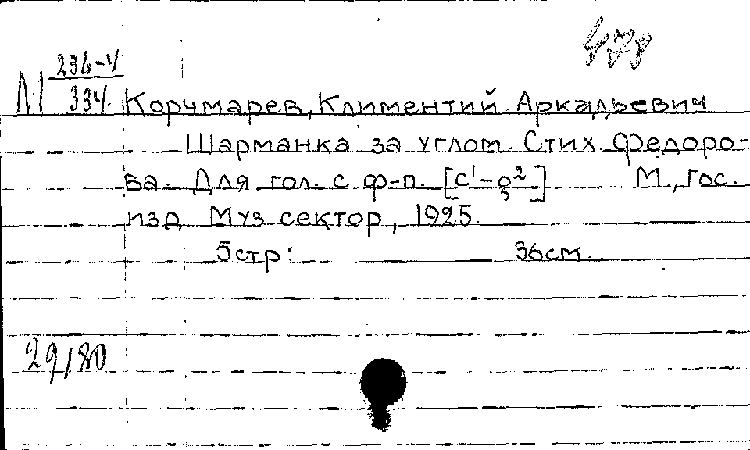 478
М 236-4
334
Корчмарев, Климентий Аркадьевич
Шарманка за углом. Стих. Федоро-
ва. Для гол. с ф-п. [c¹-g²] М., Гос.
изд. Муз. сектор, 1925.
5стр. 36см.
29/80